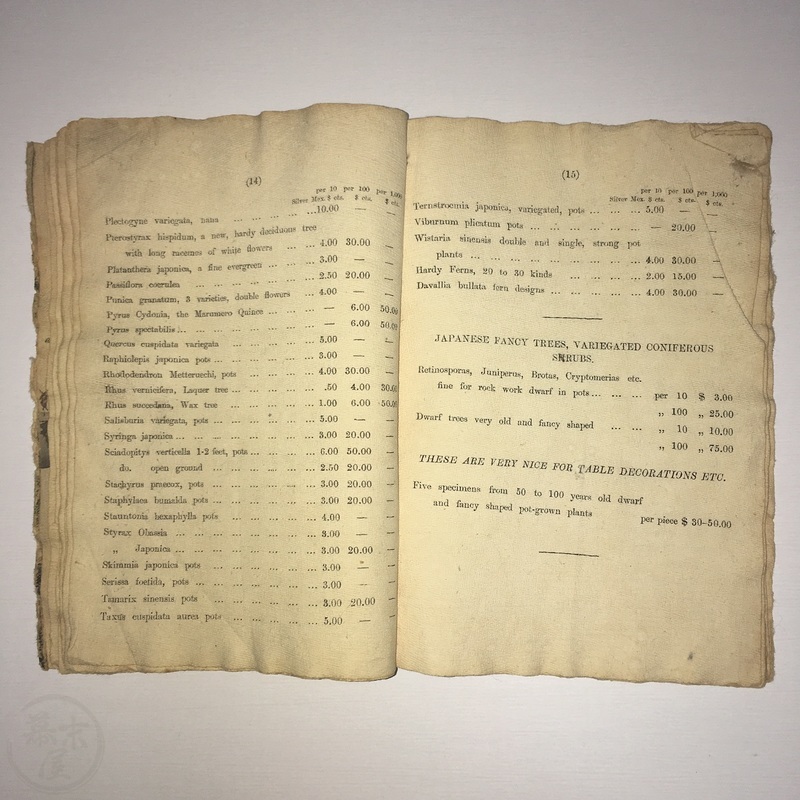 (14)
per 10 per 100 per 1,000
Silver Mex. $ cts. $ cts. $ cts.
Plectogyne variegata, nana ... ... ... ...10.00 —
Pterostyrax hispidum, a new, hardy deciduous tree
with long racemes of white flowers ... ... 4.00 30.00 —
Platanthera japonica, a fine evergreen ... ... 3.00 — —
Passiflora coerulea ... ... ... ... 2.50 20.00 —
Punica granatum, 3 varieties, double flowers ... 4.00 — —
Pyrus Cydonia, the Marumero Quince ... ... — 6.00 50.00
Pyrus spectabilis ... ... ... ... ... — 6.00 50.00
Quercus cuspidata variegata ... ... ... 5.00 — —
Raphiolepis japonica pots ... ... ... ... 3.00 — —
Rhododendron Metternechi, pots ... ... ... 4.00 30.00 —
Rhus vernicifera, Laquer tree ... ... ... ... .50 4.00 30.00
Rhus succedana, Wax tree ... ... ... ... 1.00 6.00 50.00
Salisburia variegata, pots ... ... ... ... 5.00 — —
Syringa japonica ... ... ... ... ... 3.00 20.00 —
Sciadopitys verticella 1-2 feet, pots ... ... ... 6.00 50.00 —
do. open ground ... ... ... ... 2.50 20.00 —
Stachyrus præcox, pots ... ... ... ... 3.00 20.00 —
Staphylaea bumalda pots ... ... ... ... 3.00 20.00 —
Stauntonia hexaphylla pots ... ... ... ... 4.00 — —
Styrax Obassia ... ... ... ... ... 3.00 — —
„ Japonica ... ... ... ... ... 3.00 20.00 —
Skimmia japonica pots ... ... ... ... 3.00 — —
Serissa foetida, pots ... ... ... ... ... 3.00 — —
Tamarix sinensis pots ... ... ... ... 3.00 20.00 —
Taxus cuspidata aurea pots ... ... ... ... 5.00 — —
(15)
per 10 per 100 per 1,000
Silver Mex. $ cts. $ cts. $ cts.
Ternstroemia japonica, variegated, pots ... ... ... 5.00 — —
Viburnum plicatum pots ... ... ... ... ... — 20.00 —
Wistaria sinensis double and single, strong pot
plants ... ... ... ... ... ... ... 4.00 30.00 —
Hardy Ferns, 20 to 30 kinds ... ... ... ... 2.00 15.00 —
Davallia bullata fern designs ... ... ... ... 4.00 30.00 —
JAPANESE FANCY TREES, VARIEGATED CONIFEROUS
SHRUBS.
Retinosporas, Juniperus, Brotas, Cryptomerias etc.
fine for rock work dwarf in pots ... ... per 10 $ 3.00
„ 100 „ 25.00
Dwarf trees very old and fancy shaped ... ... „ 10 „ 10.00
„ 100 „ 75.00
THESE ARE VERY NICE FOR TABLE DECORATIONS ETC.
Five specimens from 50 to 100 years old dwarf
and fancy shaped pot-grown plants per piece $ 30-50.00